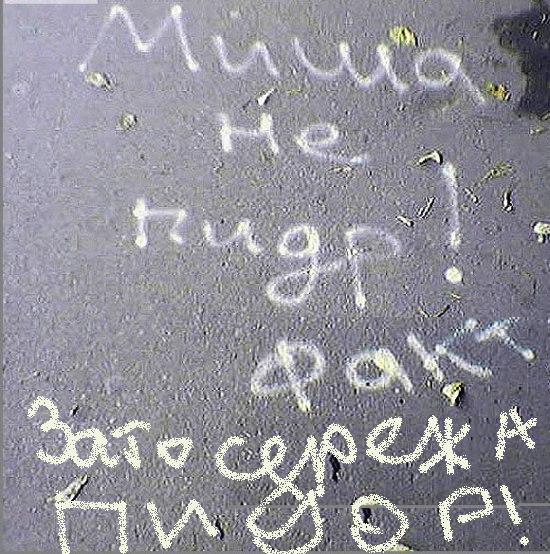 Миша
не
пидр!
факт
Зато сережА
ПИдОР!